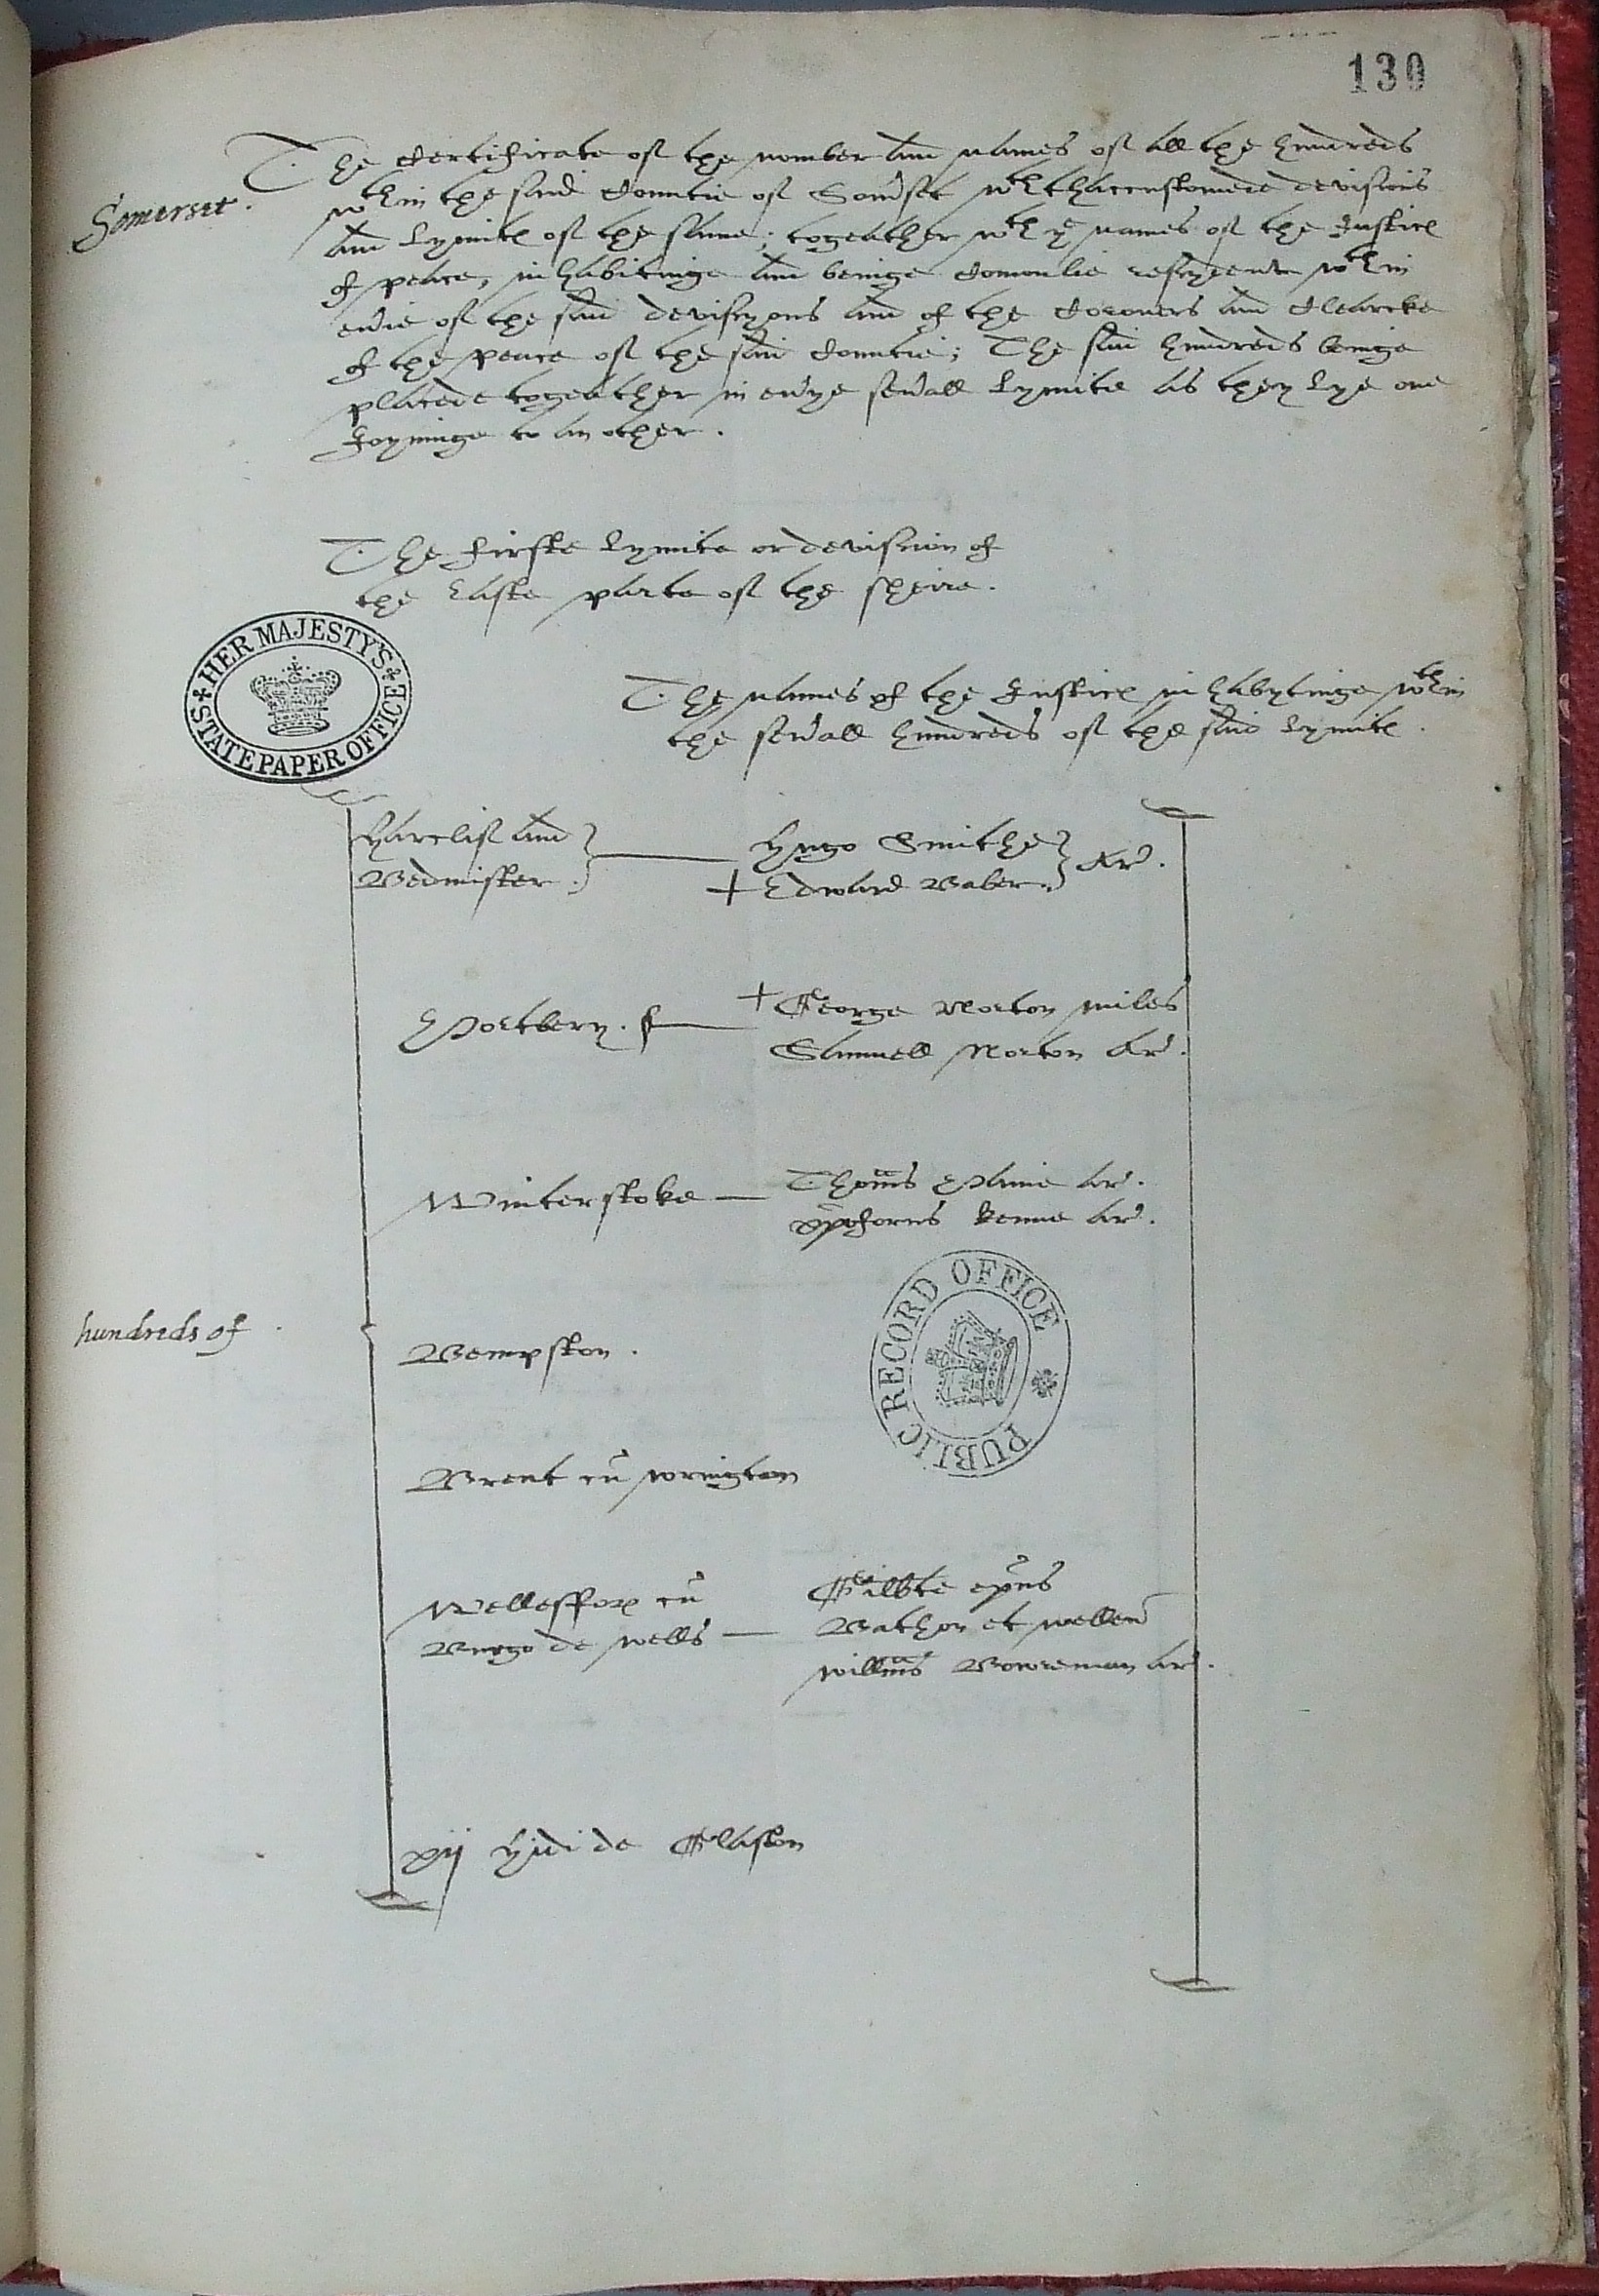 130
Somerset.
The Certificate of the nomber and names of all the hundreds
wth in the said Countie of Som'set wth thaccustomede devisions
and Lymitℯ of the same; togeather wth ye names of the Justicℯ
of peace, inhabitinge and beinge Comonlie resydente wth in
eu'ie of the said devisyons and of the Coroners and Clearcke
of the peace of the said Countie; The said hundreds beinge
placede togeather in eu'ye seu'all Lymitℯ as they lye one
Joyninge to an other.
The firste Lymite or devision of
the Easte parte of the sheire.
HER MAJESTY'S STATE PAPER OFFICE
The names of the Justicℯ inhabytinge wth in
the seu'all hundreds of the said Lymitℯ.
Harclif and
Bedmister.
Hugo Smithe
+ Edward Baber.
Ar'.
Portbery.
+ George Norton miles
Samuell Norton Ar'.
Winterstoke
Thom̄s Ar'.
xp̄oforus Kenne Ar'.
hundreds of
Bempston.
PUBLIC RECORD OFFICE
Brent cū wrington
Wellesfor cū
Burgo de wells
Gilbte ep̄us
Bathon et wellen'
willm̄s Bowreman Ar'.
xij Hidi de Glaston